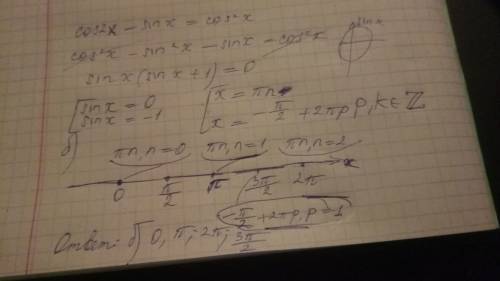 cos2x - sinx = cos²x
cos²x - sin²x - sinx - cos²x
sinx(sinx+1)=0
sinx
[sinx = 0 [x = πn
[sinx = -1 [x = -π/2 + 2πp p,k∈ℤ
б)
πn,n=0 πn,n=1 πn,n=2
0 π/2 π 3π/2 2π x
-π/2 + 2πp, p=1
Ответ: б) 0, π; -2π; 3π/2